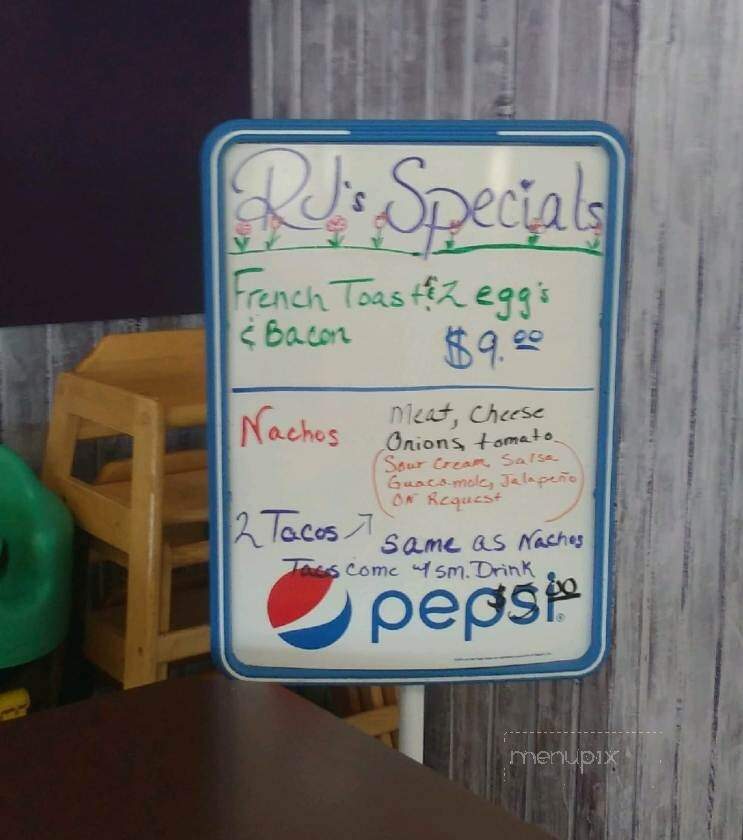 RJ's Specials
French Toast & 2 egg's
& Bacon
$9.00
Nachos
Meat, Cheese
Onions, tomato
Sour Cream, Salsa
Guacamole, Jalapeño
ON Request
2 Tacos
same as Nachos
Tacos come w/ sm. Drink
$5.00
pepsi
menupix